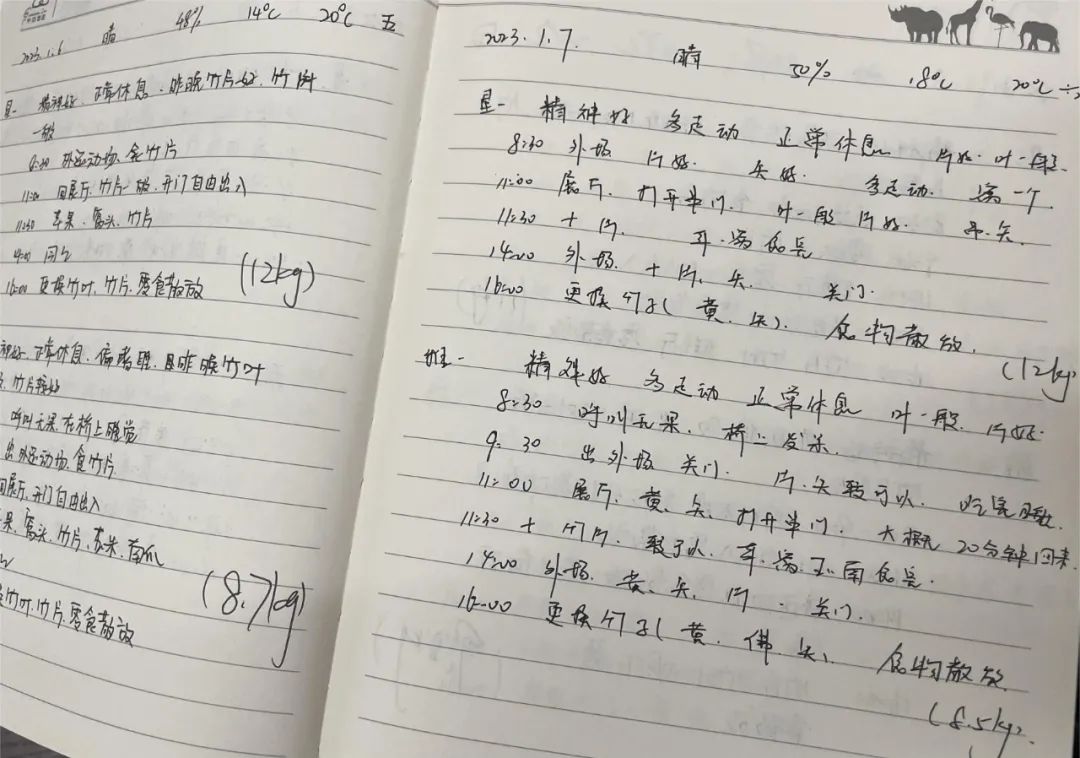 2023.1.6 晴 48% 14℃ 20℃ 五
星- 精神好、正常休息、昨晚竹片好、竹叶
一般
9:30 外运动场、食竹片
11:00 回展厅、竹片一般、开门自由出入
11:30 苹果、窝头、竹片
14:00 同上
16:00 更换竹叶、竹片、零食散放
(12kg)
神好、正常休息、偏
昨晚竹叶
竹片较好
呼叫无果、在桥上睡觉
出外运动场、食竹片
回展厅、开门自由出入
果、窝头、竹片、
南瓜
竹叶、竹片、零食散放
(8.7kg)
2023.1.7. 晴 50% 18℃ 20℃
星- 精神好 多走动 正常休息 片好. 叶一般.
8:30 外场 片好. 头好. 多走动. 窝一个
11:00 展厅. 打开串门. 叶一般 片好.
11:30 十片.
14:00 外场. 十片. 头. 关门.
16:00 更换竹子(黄. 头). 食物散放.
(12kg)
班- 精神好 多走动 正常休息 叶一般. 片好.
8:30 呼叫无果. 桥上发呆.
9:30 出外场 关门. 片. 头较可以. 吃完睡.
11:00 展厅. 黄. 头. 打开串门. 大概 20分钟回来
11:30 十竹片. 较可以.
14:00 外场. 黄. 头. 片. 关门.
16:00 更换竹子(黄. 佛 头) 食物散放.
(8.5kg).